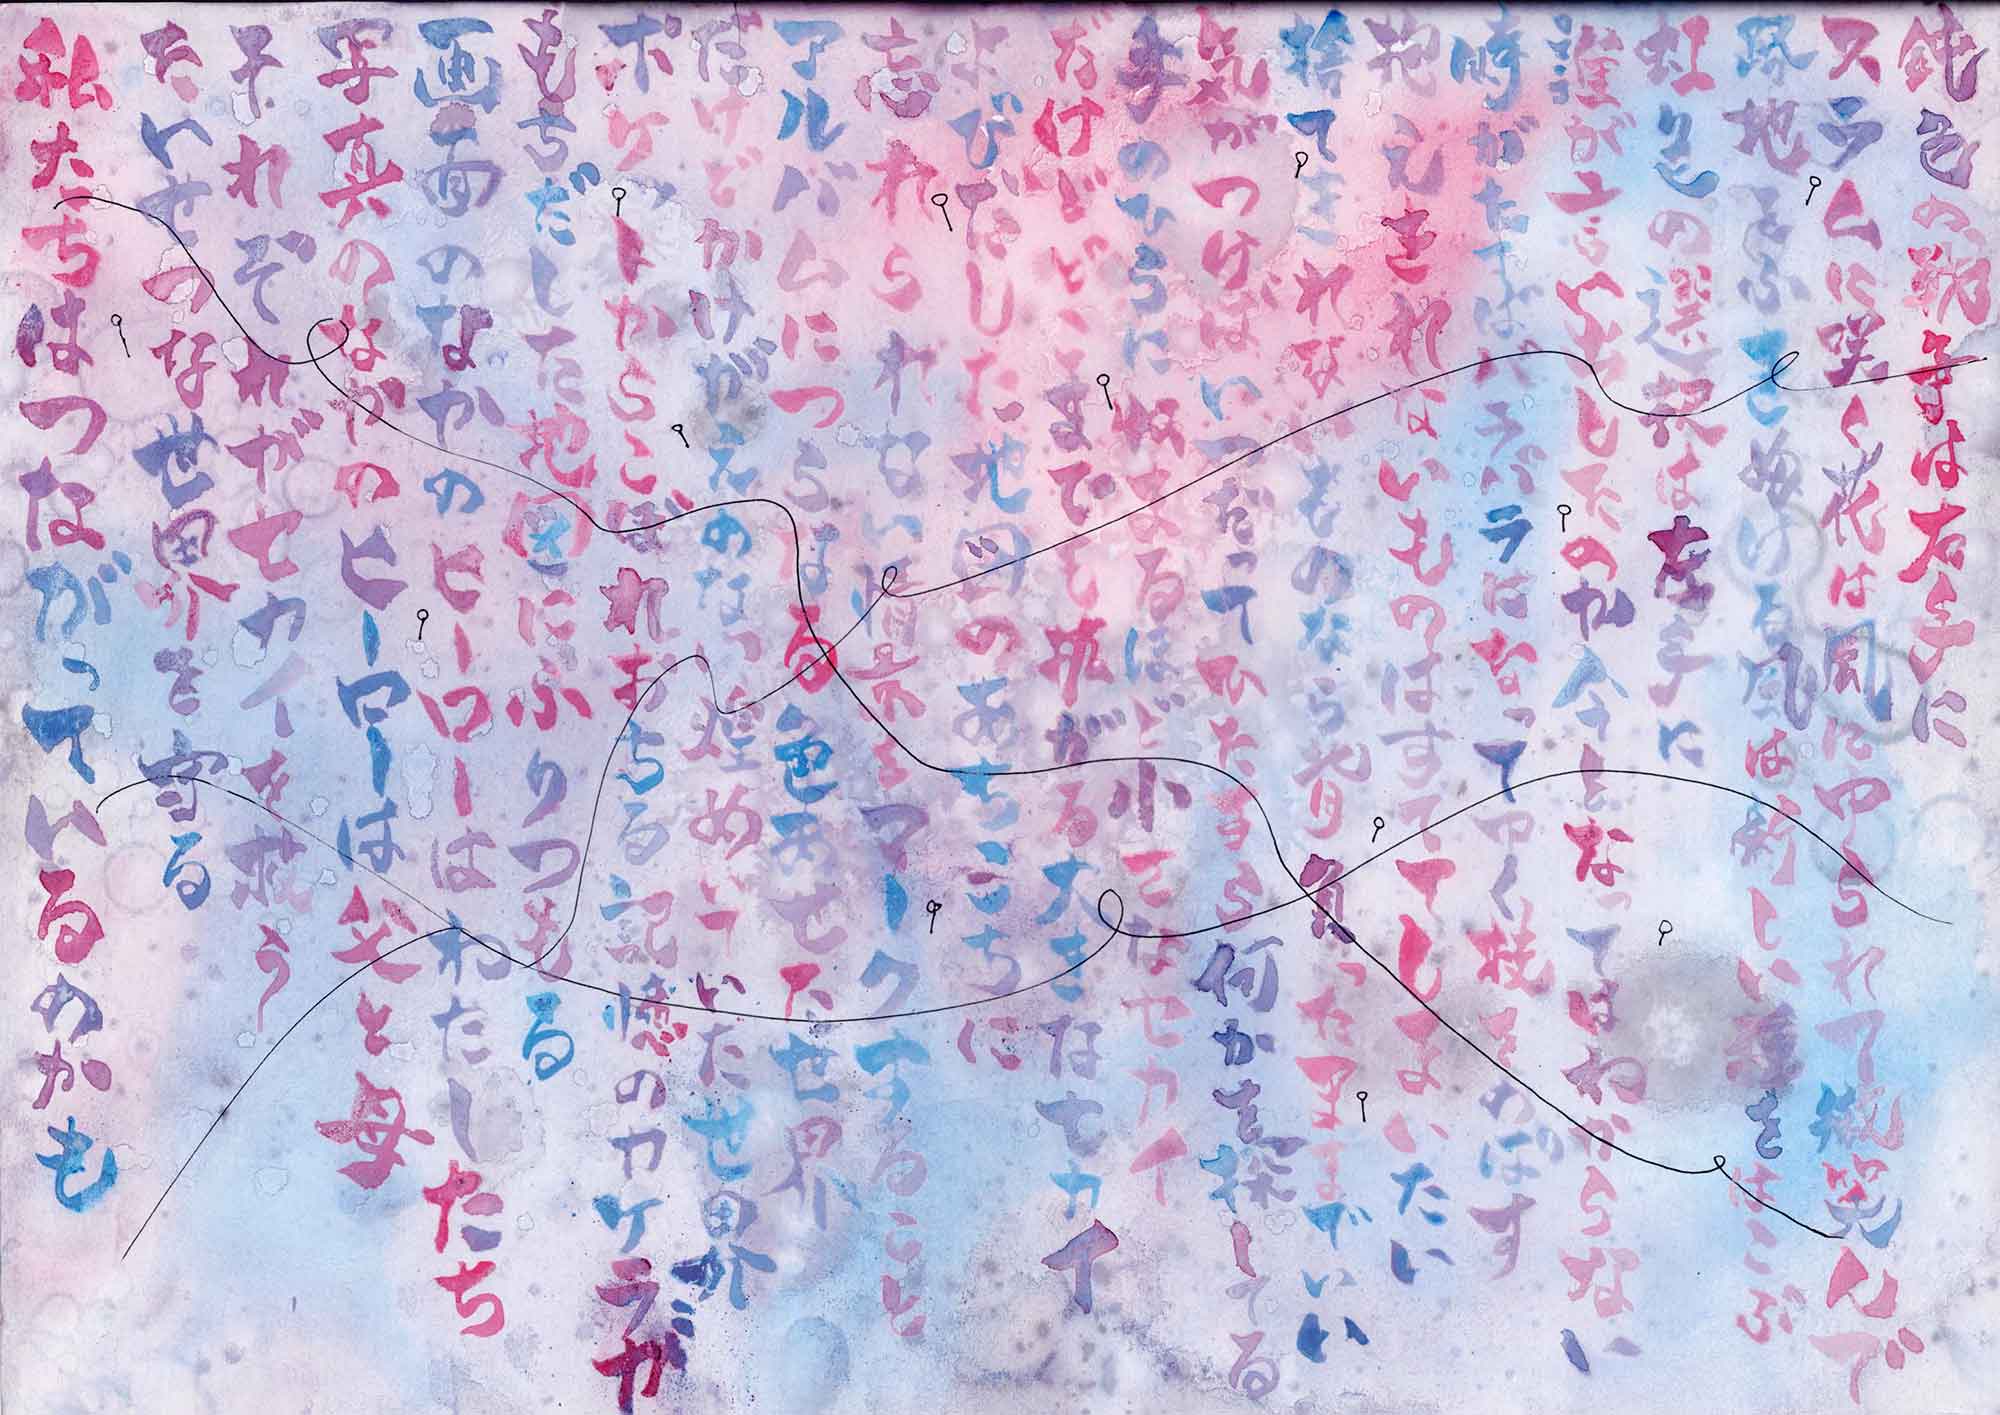 鈍色の は右手に
スラムに咲く花は風にゆられて微笑んで
路地をふきぬける風は新しい種をはこぶ
虹色の選択は左手に
誰が言い出したのか今となってはわからない
時がたてばバラバラになってゆく枝をのばす
抱えきれないものはすててしまいたい
捨てきれないものなら背負ったままでいい
気がつけばいつだってひたすら何かを探してる
手のひらに収まるほど小さなセカイ
だけどどこまでも拡がる大きなセカイ
よびだした地図のあちこちに
忘れられない情景をマークすること
アルバムにつらなる色あせた世界
だけどかけがえのない煌めいていた世界
ポケットからこぼれおちる記憶のカケラが
もちだした地図にふりつもる
画面のなかのヒーローはわたしたち
写真のなかのヒーローは父と母
それぞれがセカイを救う
たいせつな世界を守る
私たちはつながっているのかも